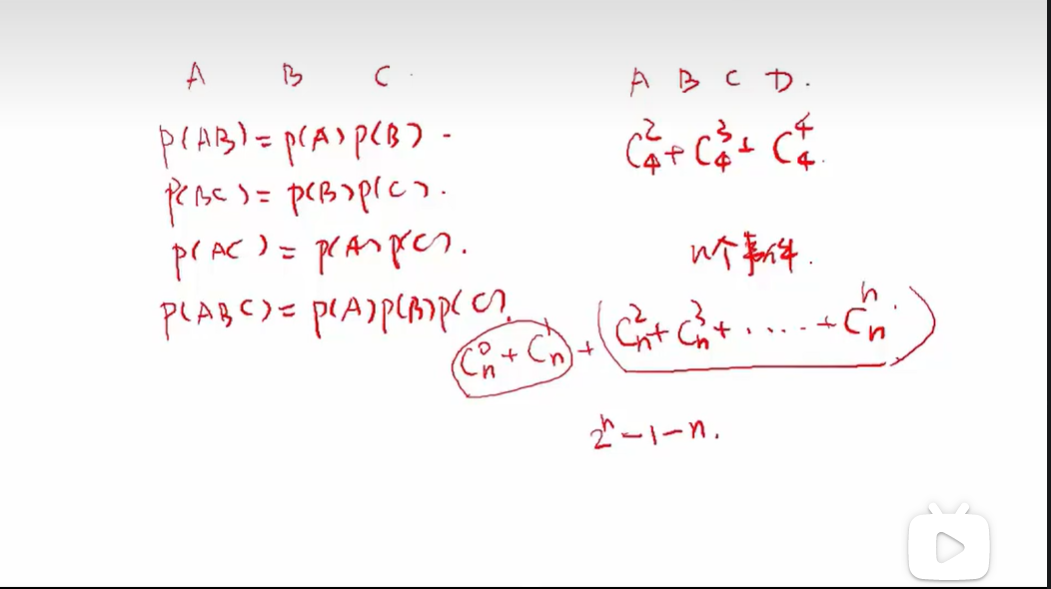 A B C
P(AB)=P(A)P(B)
P(BC)=P(B)P(C).
P(AC)=P(A)P(C).
P(ABC)=P(A)P(B)P(C).
A B C D.
C₄²+C₄³+C₄⁴.
n个事件.
Cₙ⁰+Cₙ¹+(Cₙ²+Cₙ³+....+Cₙⁿ.)
2ⁿ-1-n.